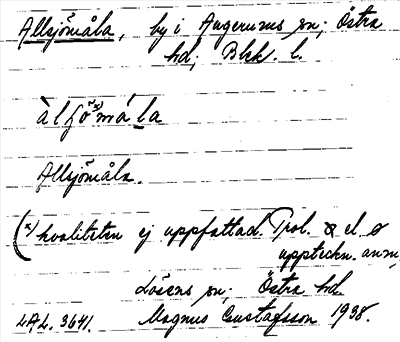 Allsjömåla, by i Augerums sn; Östra
hd; Blek. l.
àlʃö̆ˣ⁾má la
Allsjömåla.
(ˣ⁾ kvaliteten ej uppfattad. Trol. & el ø
uppteckn. anm,
Lösens sn; Östra hd.
LAL. 3641. Magnus Gustafsson 1938.